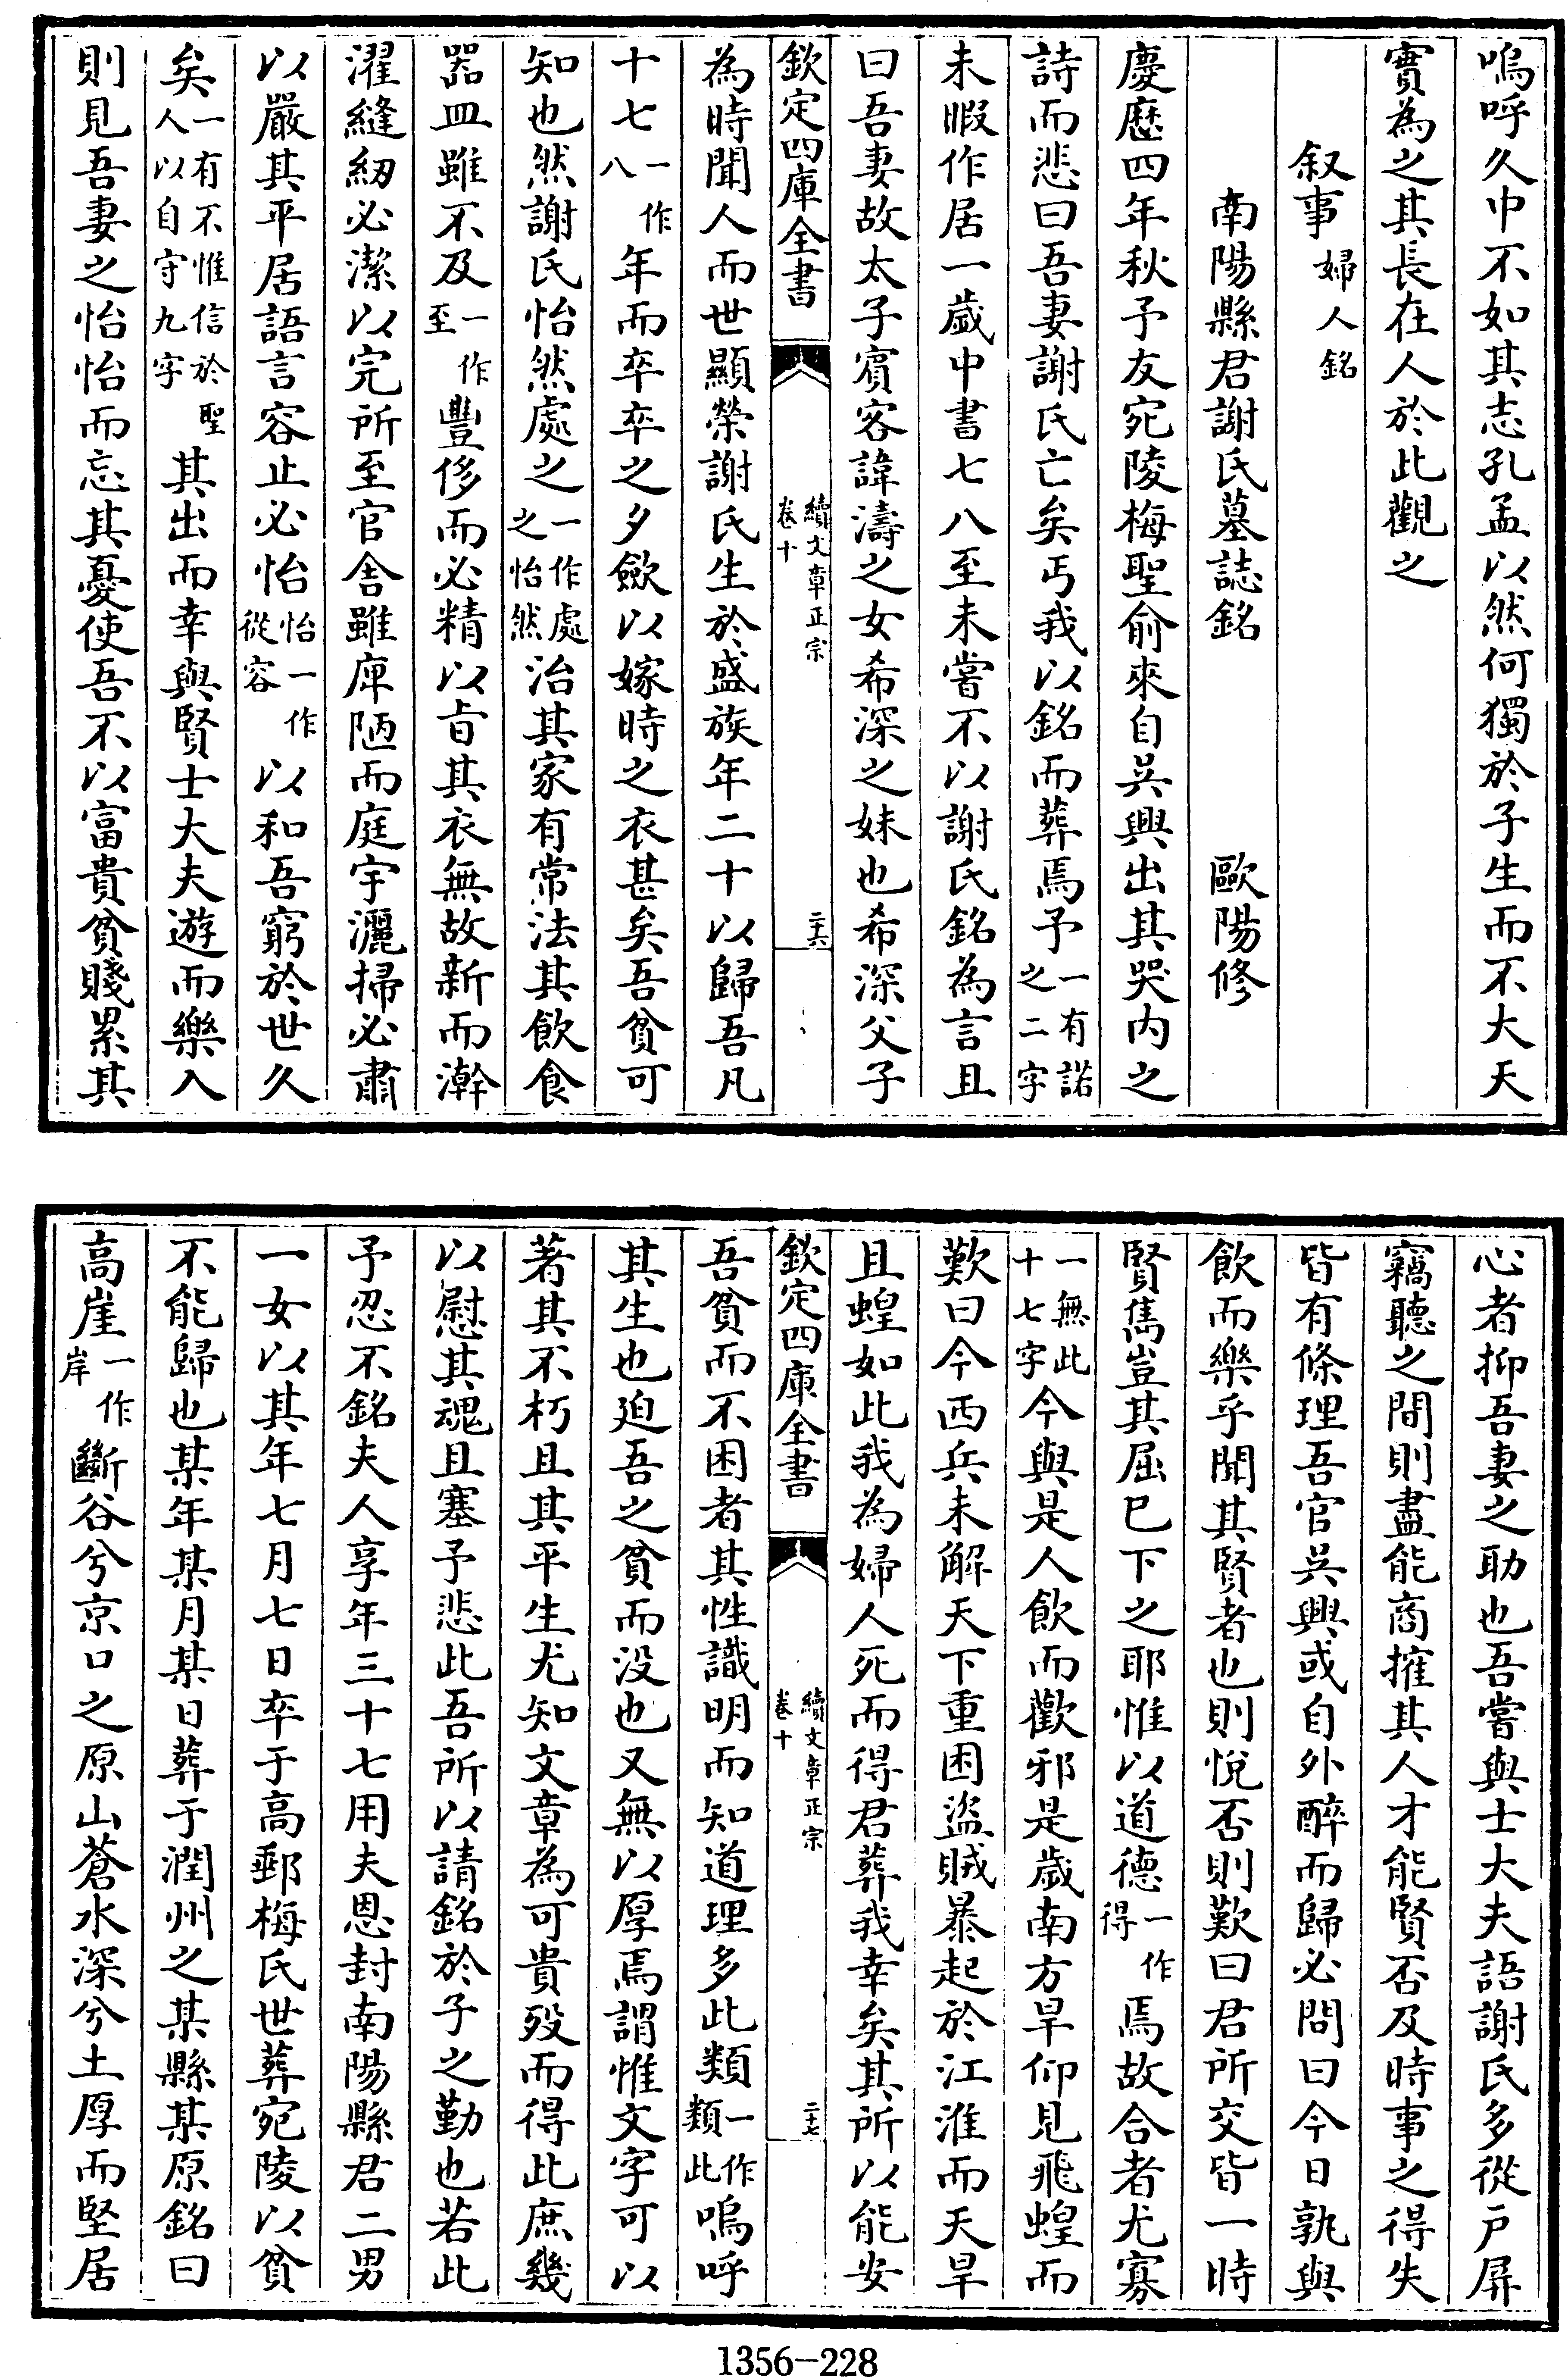 嗚呼久中不如其志孔孟以然何獨於子生而不大天
實為之其長在人於此觀之
叙事婦人銘
南陽縣君謝氏墓誌銘　歐陽修
慶歴四年秋予友宛陵梅聖俞來自吳興出其哭内之
詩而悲曰吾妻謝氏亡矣丐我以銘而葬焉予一有諾之二字
未暇作居一歲中書七八至未嘗不以謝氏銘為言且
曰吾妻故太子賔客諱濤之女希深之妹也希深父子
欽定四庫全書　續文章正宗卷十　二十六
為時聞人而世顯榮謝氏生於盛族年二十以歸吾凡
十七一作八年而卒卒之夕斂以嫁時之衣甚矣吾貧可
知也然謝氏怡然處之一作處之怡然治其家有常法其飲食
器皿雖不及一作至豐侈而必精以旨其衣無故新而澣
濯縫紉必潔以完所至官舍雖庳陋而庭宇灑掃必肅
以嚴其平居語言容止必怡怡一作從容以和吾窮於世久
矣一有不惟信於聖人以自守九字其出而幸與賢士大夫遊而樂入
則見吾妻之怡怡而忘其憂使吾不以富貴貧賤累其
心者抑吾妻之助也吾嘗與士大夫語謝氏多從户屏
竊聽之間則盡能商搉其人才能賢否及時事之得失
皆有條理吾官吳興或自外醉而歸必問曰今日孰與
飲而樂乎聞其賢者也則悅否則歎曰君所交皆一時
賢雋豈其屈已下之耶惟以道德一作得焉故合者尤寡
一無此十七字今與是人飲而歡邪是歲南方旱仰見飛蝗而
歎曰今西兵未解天下重困盜賊暴起於江淮而天旱
且蝗如此我為婦人死而得君葬我幸矣其所以能安
欽定四庫全書　續文章正宗卷十　二十七
吾貧而不困者其性識明而知道理多此類一作類此嗚呼
其生也迫吾之貧而没也又無以厚焉謂惟文字可以
著其不朽且其平生尤知文章為可貴殁而得此庶幾
以慰其魂且塞予悲此吾所以請銘於子之勤也若此
予忍不銘夫人享年三十七用夫恩封南陽縣君二男
一女以其年七月七日卒于高郵梅氏世葬宛陵以貧
不能歸也某年某月某日葬于潤州之某縣某原銘曰
高崖一作岸斷谷兮京口之原山蒼水深兮土厚而堅居
1356-228